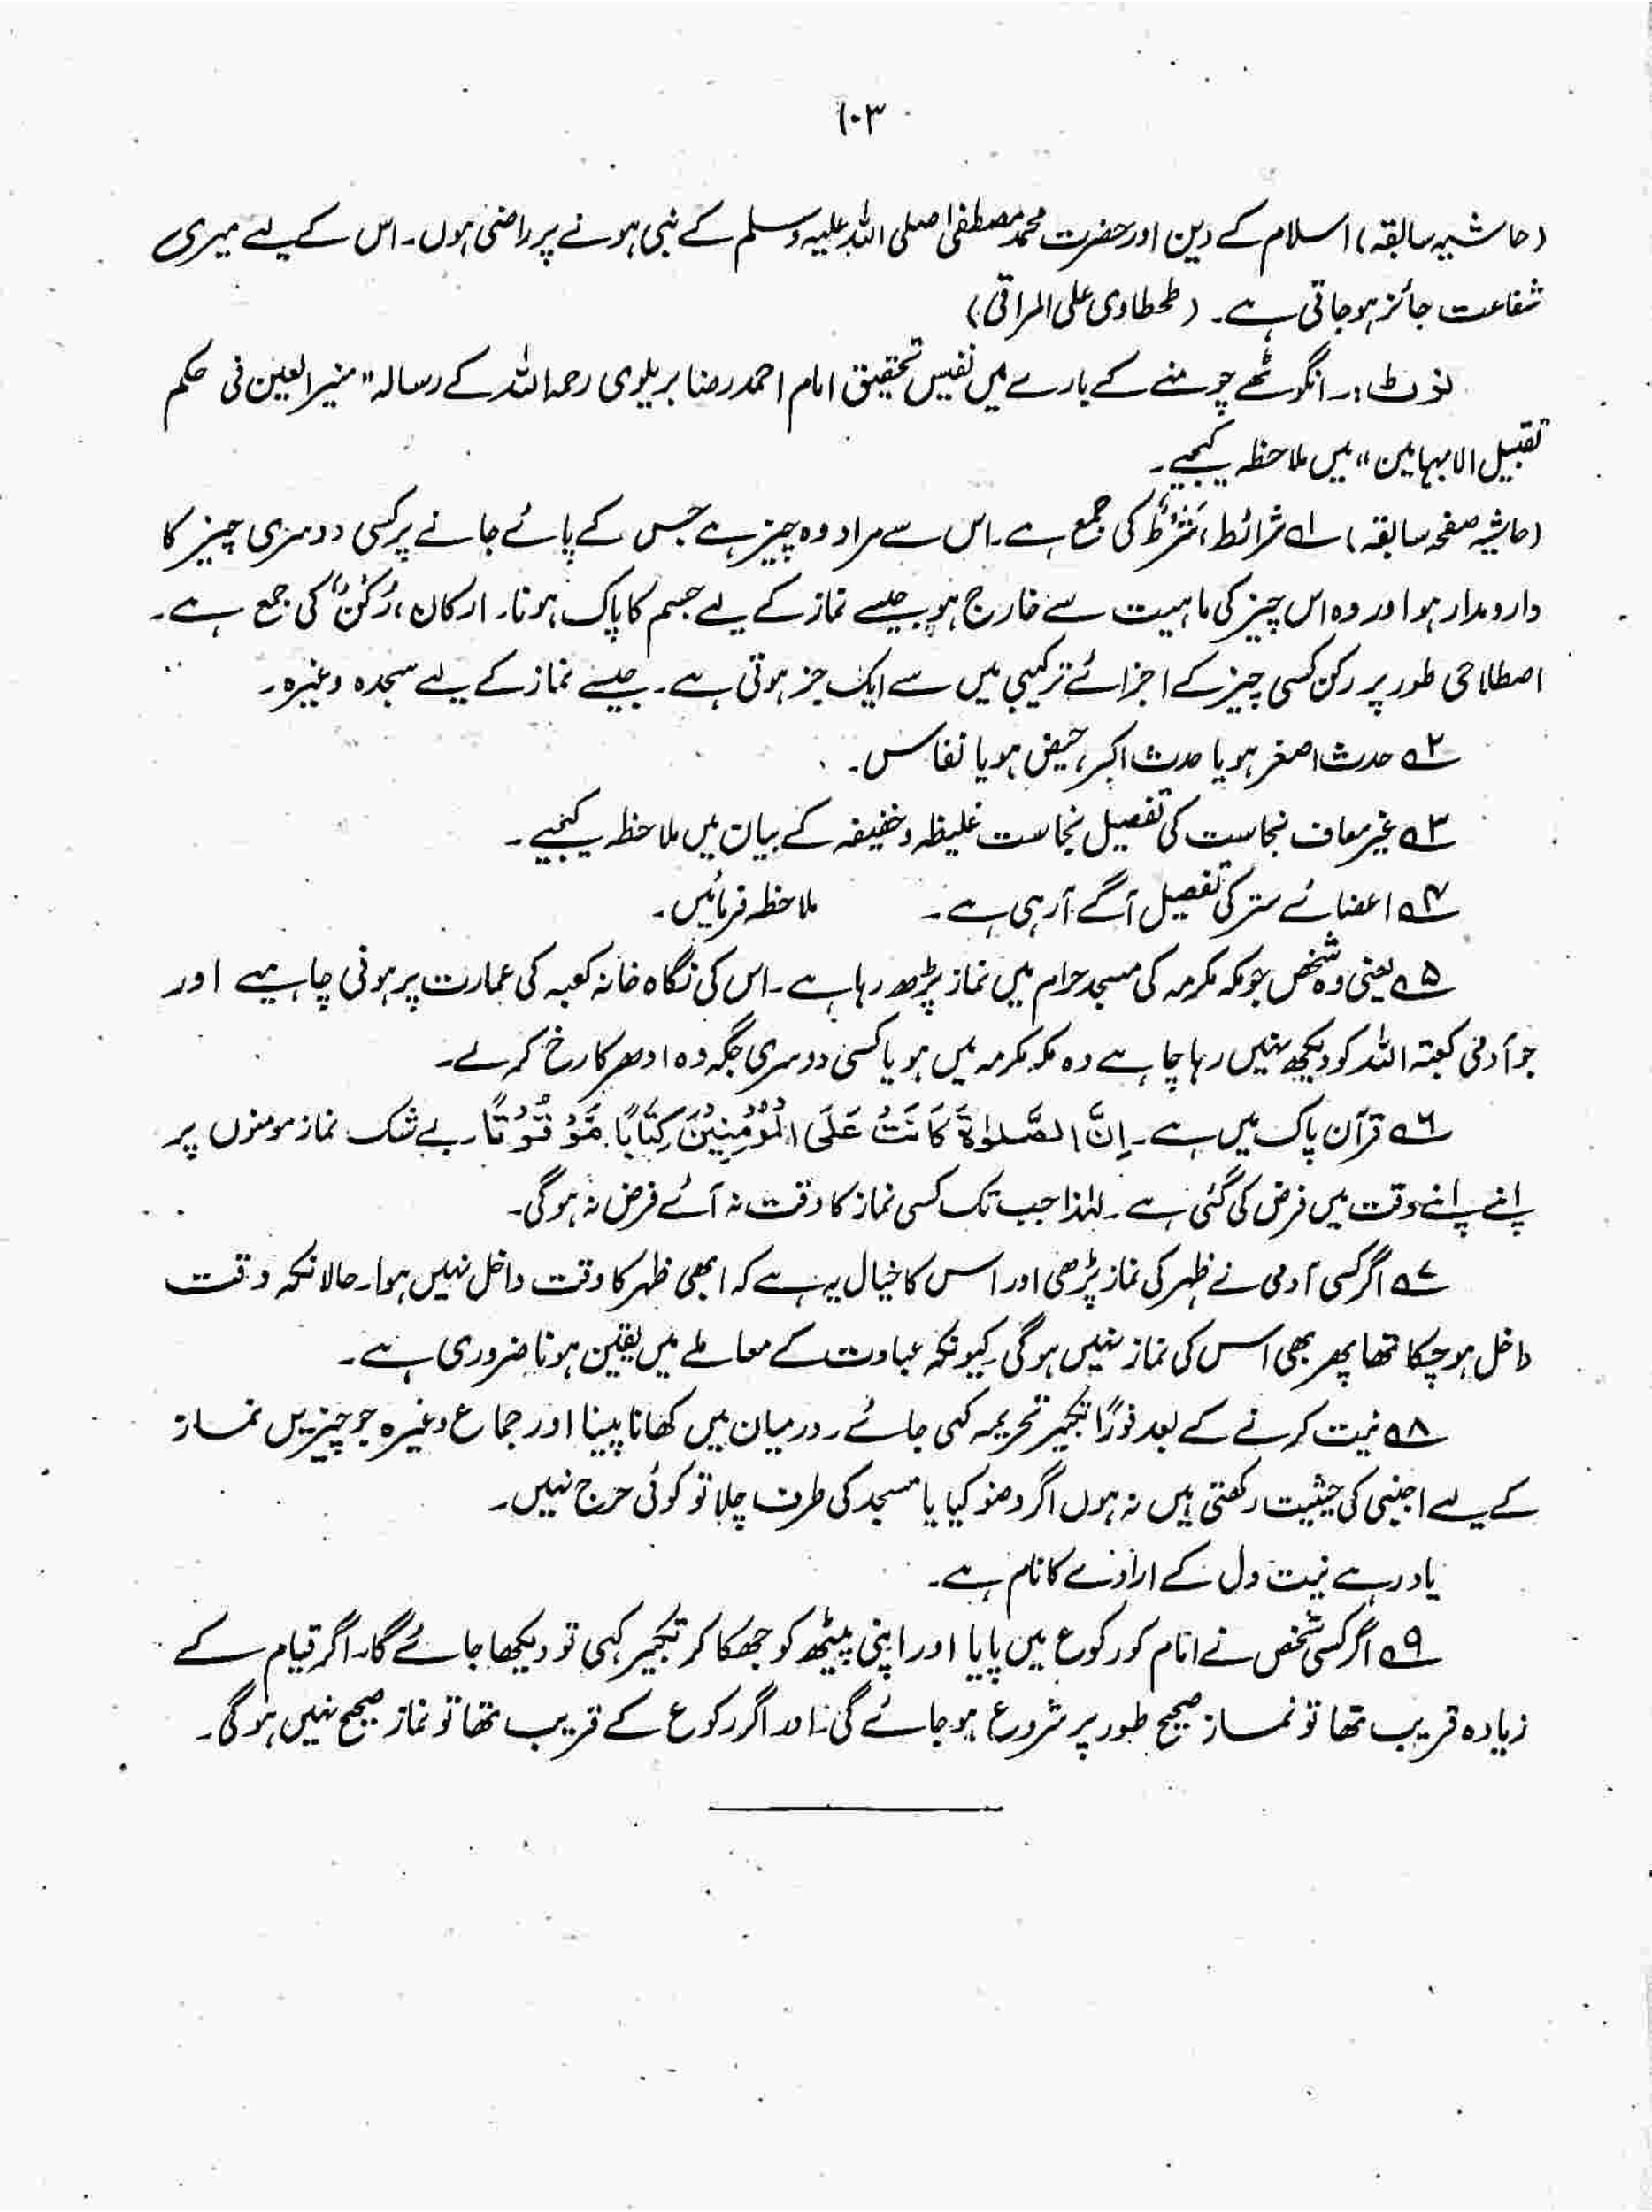 ۱۰۳
(حاشیہ سابقہ) اسلام کے دین اور حضرت محمد مصطفیٰ صلی اللہ علیہ وسلم کے نبی ہونے پر راضی ہوں۔ اس کے لیے میری
شفاعت جائز ہو جاتی ہے۔ (طحطاوی علی المراقی)
نوٹ:۔ انگوٹھے چومنے کے بارے میں نفیس تحقیق امام احمد رضا بریلوی رحمہ اللہ کے رسالہ "منیر العین فی حکم
تقبیل الابہامین" میں ملاحظہ کیجیے۔
(حاشیہ صفحہ سابقہ) ۱؎ شرائط، شَرْطٌ کی جمع ہے۔ اس سے مراد وہ چیز ہے جس کے پائے جانے پر کسی دوسری چیز کا
دارومدار ہو اور وہ اس چیز کی ماہیت سے خارج ہو جیسے نماز کے لیے جسم کا پاک ہونا۔ ارکان، رُکْنٌ کی جمع ہے۔
اصطلاحی طور پر رکن کسی چیز کے اجزائے ترکیبی میں سے ایک جز ہوتی ہے۔ جیسے نماز کے لیے سجدہ وغیرہ۔
۲؎ حدث اصغر ہو یا حدث اکبر، حیض ہو یا نفاس۔
۳؎ غیر معاف نجاست کی تفصیل نجاست غلیظہ و خفیفہ کے بیان میں ملاحظہ کیجیے۔
۴؎ اعضائے ستر کی تفصیل آگے آ رہی ہے۔ ملاحظہ فرمائیں۔
۵؎ یعنی وہ شخص جو مکہ مکرمہ کی مسجد حرام میں نماز پڑھ رہا ہے۔ اس کی نگاہ خانہ کعبہ کی عمارت پر ہونی چاہیے اور
جو آدمی کعبتہ اللہ کو دیکھ نہیں رہا چاہے وہ مکہ مکرمہ میں ہو یا کسی دوسری جگہ وہ ادھر کا رخ کرلے۔
۶؎ قرآن پاک میں ہے۔ اِنَّ الصَّلٰوةَ كَانَتْ عَلَى الْمُؤْمِنِيْنَ كِتَابًا مَّوْقُوْتًا۔ بے شک نماز مومنوں پر
اپنے اپنے وقت میں فرض کی گئی ہے۔ لہٰذا جب تک کسی نماز کا وقت نہ آئے فرض نہ ہوگی۔
۷؎ اگر کسی آدمی نے ظہر کی نماز پڑھی اور اس کا خیال یہ ہے کہ ابھی ظہر کا وقت داخل نہیں ہوا۔ حالانکہ وقت
داخل ہو چکا تھا پھر بھی اس کی نماز نہیں ہوگی۔ کیونکہ عبادت کے معاملے میں یقین ہونا ضروری ہے۔
۸؎ نیت کرنے کے بعد فورًا تکبیر تحریمہ کہی جائے۔ درمیان میں کھانا پینا اور جماع وغیرہ جو چیزیں نماز
کے لیے اجنبی کی حیثیت رکھتی ہیں نہ ہوں اگر وضو کیا یا مسجد کی طرف چلا تو کوئی حرج نہیں۔
یاد رہے نیت دل کے ارادے کا نام ہے۔
۹؎ اگر کسی شخص نے امام کو رکوع میں پایا اور اپنی پیٹھ کو جھکا کر تکبیر کہی تو دیکھا جائے گا۔ اگر قیام کے
زیادہ قریب تھا تو نماز صحیح طور پر شروع ہو جائے گی۔ اور اگر رکوع کے قریب تھا تو نماز صحیح نہیں ہوگی۔